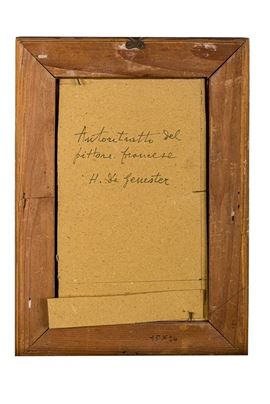 Autoritratto del
pittore francese
H. De Genester
15 x 26